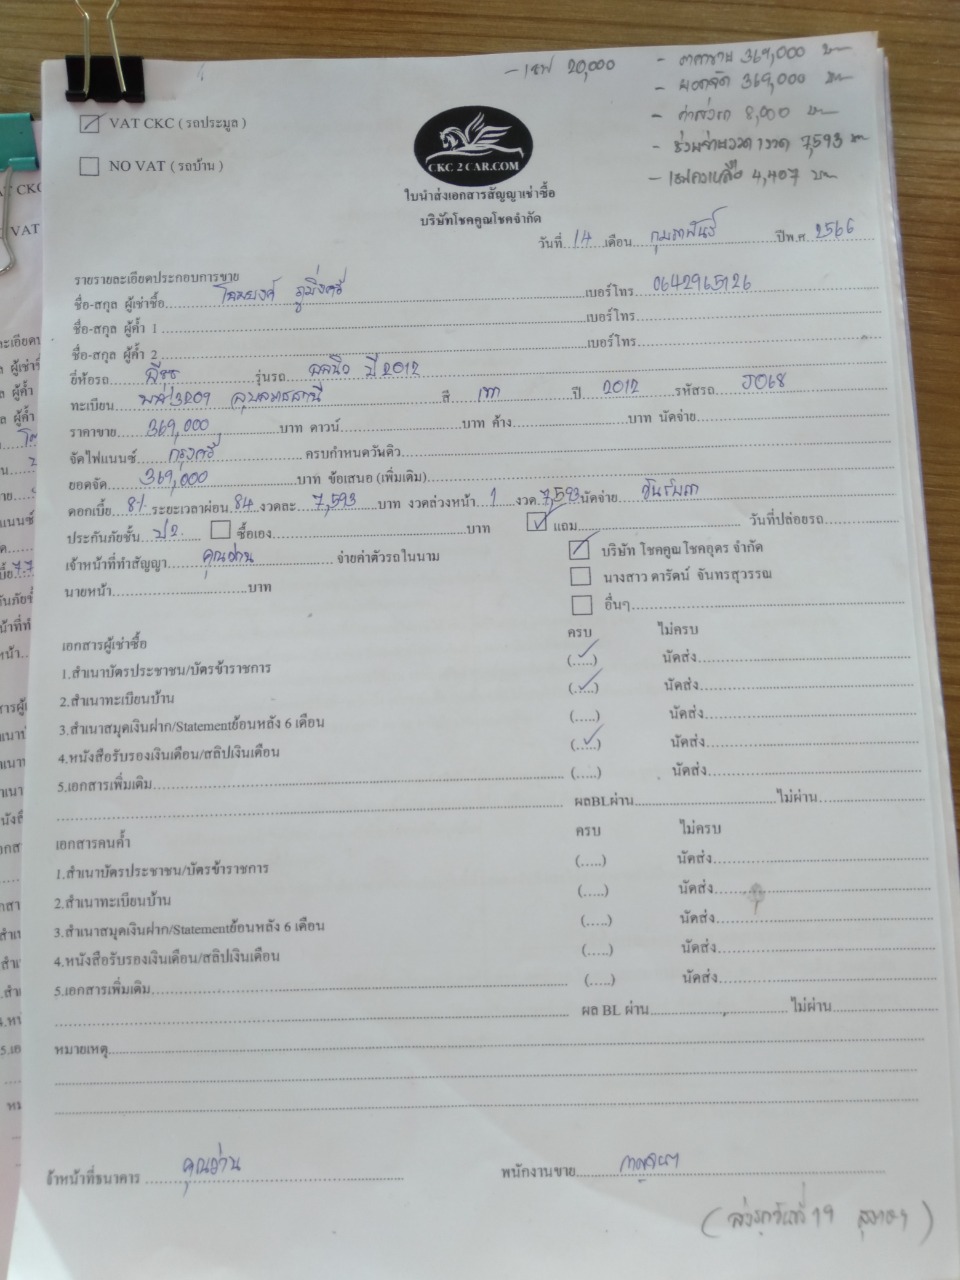 - เซฟ 20,000
- ราคาขาย 369,000 บาท
- ยอดจัด 369,000 บาท
- ค่าส่งรถ 8,000 บาท
- ช่วยจ่ายงวด 1 งวด 7,593 บาท
- เซฟคงเหลือ 4,407 บาท
VAT CKC ( รถประมูล )
NO VAT ( รถบ้าน )
CKC 2 CAR.COM
ใบนำส่งเอกสารสัญญาเช่าซื้อ
บริษัทโชคคูณโชคจำกัด
วันที่ 14 เดือน กุมภาพันธ์ ปีพ.ศ. 2566
รายรายละเอียดประกอบการขาย
ชื่อ-สกุล ผู้เช่าซื้อ เบอร์โทร 0642965126
ชื่อ-สกุล ผู้ค้ำ 1 เบอร์โทร
ชื่อ-สกุล ผู้ค้ำ 2 เบอร์โทร
ยี่ห้อรถ รุ่นรถ ปี 2012
ทะเบียน 3209 สี เทา ปี 2012 รหัสรถ J068
ราคาขาย 369,000 บาท ดาวน์ บาท ค้าง บาท นัดจ่าย
จัดไฟแนนซ์ กรุงศรี ครบกำหนดวันคิว
ยอดจัด 369,000 บาท ข้อเสนอ (เพิ่มเติม)
ดอกเบี้ย 8% ระยะเวลาผ่อน 84 งวดละ 7,593 บาท งวดล่วงหน้า 1 งวด 7,593 นัดจ่าย วันรับรถ
ประกันภัยชั้น ป2 ซื้อเอง บาท แถม วันที่ปล่อยรถ
เจ้าหน้าที่ทำสัญญา จ่ายค่าตัวรถในนาม บริษัท โชคคูณโชคอุดร จำกัด
นายหน้า บาท นางสาว ดารัตน์ จันทรสุวรรณ
อื่นๆ
เอกสารผู้เช่าซื้อ ครบ ไม่ครบ
1.สำเนาบัตรประชาชน/บัตรข้าราชการ (.....) นัดส่ง
2.สำเนาทะเบียนบ้าน (.....) นัดส่ง
3.สำเนาสมุดเงินฝาก/Statementย้อนหลัง 6 เดือน (.....) นัดส่ง
4.หนังสือรับรองเงินเดือน/สลิปเงินเดือน (.....) นัดส่ง
5.เอกสารเพิ่มเติม (.....) นัดส่ง
ผลBLผ่าน ไม่ผ่าน
เอกสารคนค้ำ ครบ ไม่ครบ
1.สำเนาบัตรประชาชน/บัตรข้าราชการ (.....) นัดส่ง
2.สำเนาทะเบียนบ้าน (.....) นัดส่ง
3.สำเนาสมุดเงินฝาก/Statementย้อนหลัง 6 เดือน (.....) นัดส่ง
4.หนังสือรับรองเงินเดือน/สลิปเงินเดือน (.....) นัดส่ง
5.เอกสารเพิ่มเติม (.....) นัดส่ง
ผล BL ผ่าน ไม่ผ่าน
หมายเหตุ
จ้าหน้าที่ธนาคาร พนักงานขาย
(ส่งรถวันที่ 19)